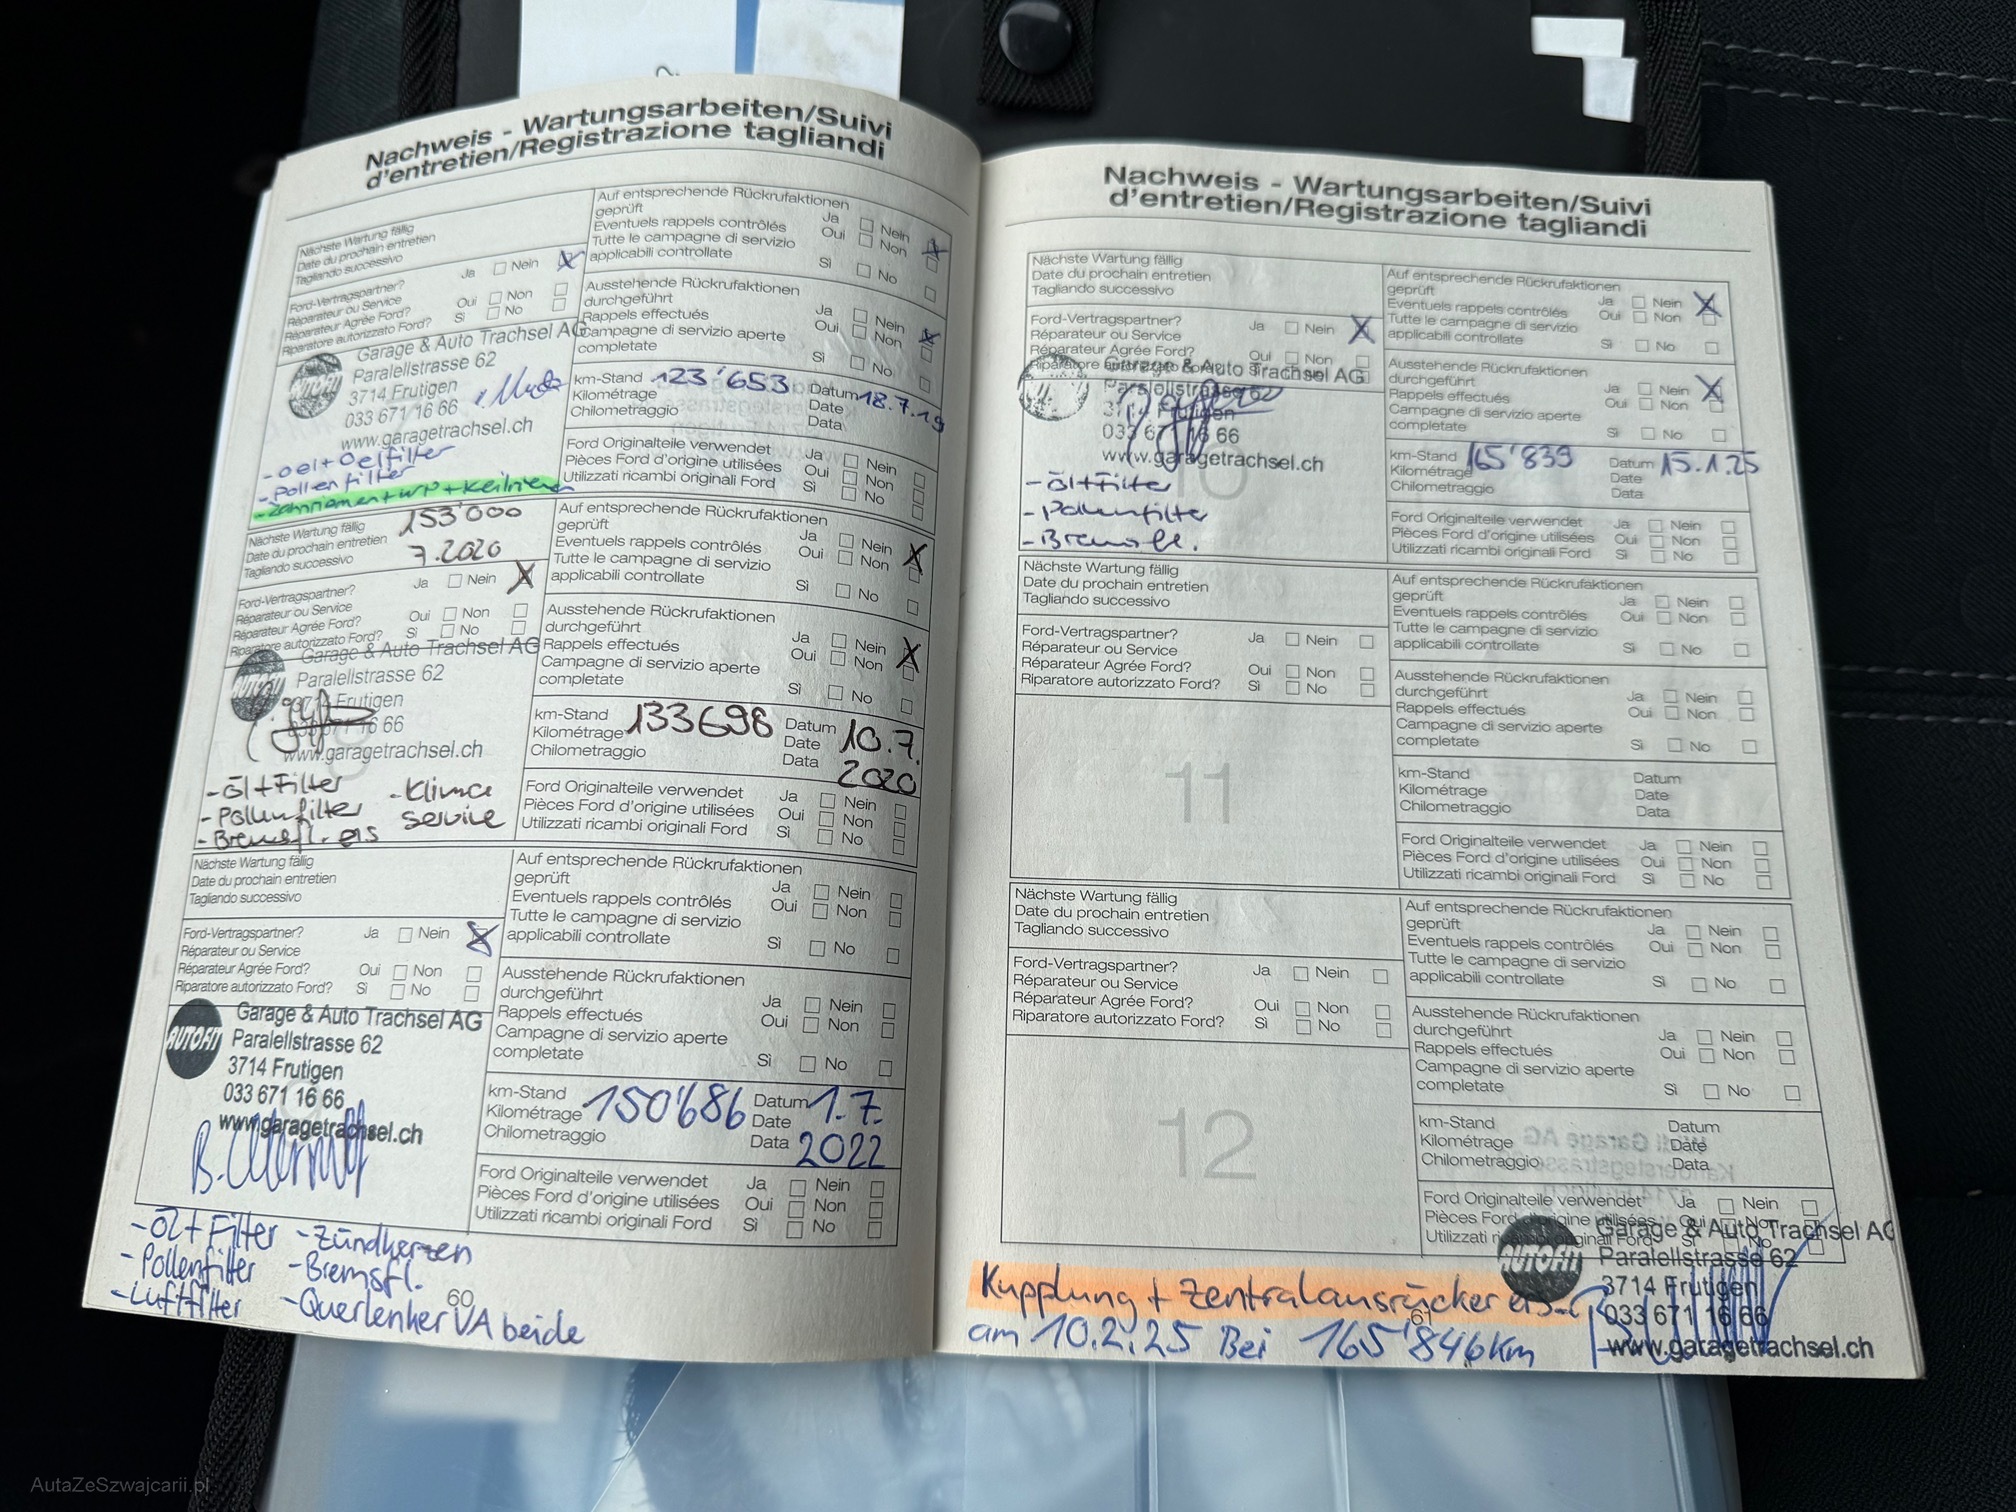 Nachweis - Wartungsarbeiten/Suivi
d'entretien/Registrazione tagliandi
Nächste Wartung fällig
Date du prochain entretien
Tagliando successivo
Ford-Vertragspartner? Ja Nein
Réparateur ou Service
Réparateur Agrée Ford? Oui Non
Riparatore autorizzato Ford? Sì No
Garage & Auto Trachsel AG
Paralellstrasse 62
3714 Frutigen
033 671 16 66
www.garagetrachsel.ch
- Oel+Oelfilter
- Pollenfilter
- Zahnriemen + WP + Keilriemen
Auf entsprechende Rückrufaktionen
geprüft Ja Nein
Eventuels rappels contrôlés Oui Non
Tutte le campagne di servizio
applicabili controllate Sì No
Ausstehende Rückrufaktionen
durchgeführt Ja Nein
Rappels effectués Oui Non
Campagne di servizio aperte
completate Sì No
km-Stand 123'653 Datum 18.7.19
Kilométrage Date
Chilometraggio Data
Ford Originalteile verwendet Ja Nein
Pièces Ford d'origine utilisées Oui Non
Utilizzati ricambi originali Ford Sì No
Nächste Wartung fällig 153'000
Date du prochain entretien 7.2020
Tagliando successivo
Ford-Vertragspartner? Ja Nein
Réparateur ou Service
Réparateur Agrée Ford? Oui Non
Riparatore autorizzato Ford? Sì No
Garage & Auto Trachsel AG
Paralellstrasse 62
3714 Frutigen
033 671 16 66
www.garagetrachsel.ch
- Öl+Filter - Klima
- Pollenfilter service
- Bremsfl. ers
Auf entsprechende Rückrufaktionen
geprüft Ja Nein
Eventuels rappels contrôlés Oui Non
Tutte le campagne di servizio
applicabili controllate Sì No
Ausstehende Rückrufaktionen
durchgeführt Ja Nein
Rappels effectués Oui Non
Campagne di servizio aperte
completate Sì No
km-Stand 133698 Datum 10.7.
Kilométrage Date 2020
Chilometraggio Data
Ford Originalteile verwendet Ja Nein
Pièces Ford d'origine utilisées Oui Non
Utilizzati ricambi originali Ford Sì No
Nächste Wartung fällig
Date du prochain entretien
Tagliando successivo
Ford-Vertragspartner? Ja Nein
Réparateur ou Service
Réparateur Agrée Ford? Oui Non
Riparatore autorizzato Ford? Sì No
AUTOFIT
Garage & Auto Trachsel AG
Paralellstrasse 62
3714 Frutigen
033 671 16 66
www.garagetrachsel.ch
Auf entsprechende Rückrufaktionen
geprüft Ja Nein
Eventuels rappels contrôlés Oui Non
Tutte le campagne di servizio
applicabili controllate Sì No
Ausstehende Rückrufaktionen
durchgeführt Ja Nein
Rappels effectués Oui Non
Campagne di servizio aperte
completate Sì No
km-Stand 150'686 Datum 1.7.
Kilométrage Date
Chilometraggio Data 2022
Ford Originalteile verwendet Ja Nein
Pièces Ford d'origine utilisées Oui Non
Utilizzati ricambi originali Ford Sì No
- Öl + Filter - Zündkerzen
- Pollenfilter - Bremsfl.
- Luftfilter - Querlenker VA beide
60
Nachweis - Wartungsarbeiten/Suivi
d'entretien/Registrazione tagliandi
Nächste Wartung fällig
Date du prochain entretien
Tagliando successivo
Ford-Vertragspartner? Ja Nein
Réparateur ou Service
Réparateur Agrée Ford? Oui Non
Riparatore autorizzato Ford?
Garage & Auto Trachsel AG
Paralellstrasse 62
3714 Frutigen
033 671 16 66
www.garagetrachsel.ch
10
- Öl+Filter
- Pollenfilter
- Bremsfl.
Auf entsprechende Rückrufaktionen
geprüft Ja Nein
Eventuels rappels contrôlés Oui Non
Tutte le campagne di servizio
applicabili controllate Sì No
Ausstehende Rückrufaktionen
durchgeführt Ja Nein
Rappels effectués Oui Non
Campagne di servizio aperte
completate Sì No
km-Stand 165'839 Datum 15.1.25
Kilométrage Date
Chilometraggio Data
Ford Originalteile verwendet Ja Nein
Pièces Ford d'origine utilisées Oui Non
Utilizzati ricambi originali Ford Sì No
Nächste Wartung fällig
Date du prochain entretien
Tagliando successivo
Ford-Vertragspartner? Ja Nein
Réparateur ou Service
Réparateur Agrée Ford? Oui Non
Riparatore autorizzato Ford? Sì No
11
Auf entsprechende Rückrufaktionen
geprüft Ja Nein
Eventuels rappels contrôlés Oui Non
Tutte le campagne di servizio
applicabili controllate Sì No
Ausstehende Rückrufaktionen
durchgeführt Ja Nein
Rappels effectués Oui Non
Campagne di servizio aperte
completate Sì No
km-Stand Datum
Kilométrage Date
Chilometraggio Data
Ford Originalteile verwendet Ja Nein
Pièces Ford d'origine utilisées Oui Non
Utilizzati ricambi originali Ford Sì No
Nächste Wartung fällig
Date du prochain entretien
Tagliando successivo
Ford-Vertragspartner? Ja Nein
Réparateur ou Service
Réparateur Agrée Ford? Oui Non
Riparatore autorizzato Ford? Sì No
12
Auf entsprechende Rückrufaktionen
geprüft Ja Nein
Eventuels rappels contrôlés Oui Non
Tutte le campagne di servizio
applicabili controllate Sì No
Ausstehende Rückrufaktionen
durchgeführt Ja Nein
Rappels effectués Oui Non
Campagne di servizio aperte
completate Sì No
km-Stand Datum
Kilométrage Date
Chilometraggio Data
Ford Originalteile verwendet Ja Nein
Pièces Ford d'origine utilisées Oui Non
Utilizzati ricambi originali Ford Sì No
AUTOFIT
Garage & Auto Trachsel AG
Paralellstrasse 62
3714 Frutigen
033 671 16 66
www.garagetrachsel.ch
Kupplung + Zentralausrücker ers.
61
am 10.2.25 Bei 165'846km
AutaZeSzwajcarii.pl